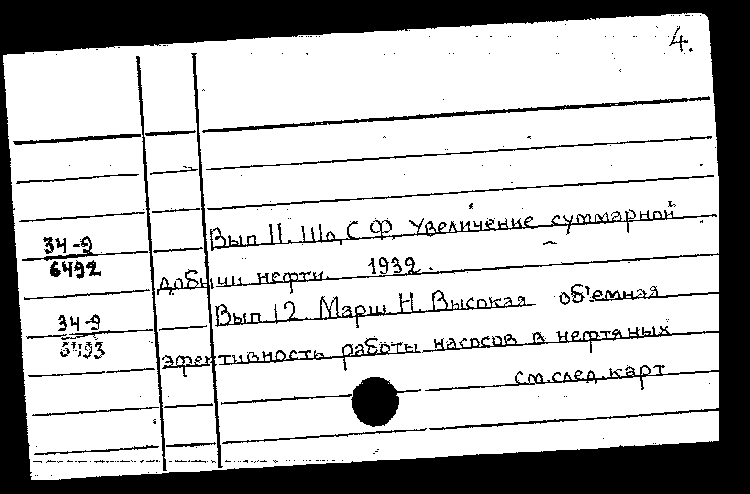 4.
Вып 11. Шо, С Ф. Увеличение суммарной
34-9
6492
добычи нефти. 1932.
Вып 12. Марш Н. Высокая об'емная
34-9
6493
эфективность работы насосов в нефтяных
см. след. карт